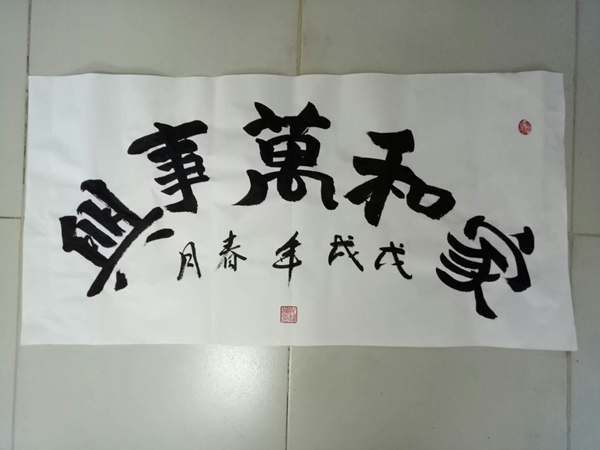 家和萬事興
戊戌年春月